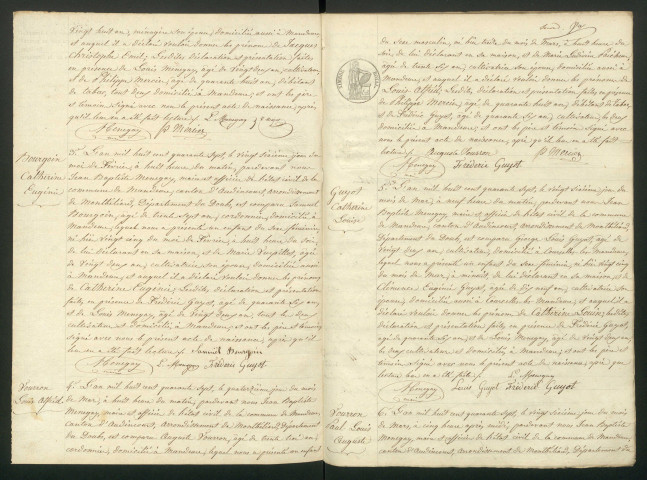 Vingt huit ans, ménagère son épouse, domiciliés aussi à Mandeure
et auquel il a déclaré vouloir donner les prénoms de Jacques
Christophe Emile, Lesdites déclaration et présentation faites
en présence de Louis Mengey, âgé de Vingt deux ans, cultivateur
et de Philippe Morein, âgé de quarante huit ans, débitant
de tabac, tous deux domiciliés à Mandeure, et ont les père
et témoins signé avec nous le présent acte de naissance, après
qu'il leur en a été fait lecture.
Bourgoin
Catherine
Eugénie
3. L'an mil huit cent quarante sept, le vingt sixième jour du
mois de Février, à huit heures du matin, pardevant nous
Jean Baptiste Mengey, maire et officier de l'état civil de la
commune de Mandeure, canton d'Audincourt, arrondissement
de Montbéliard, Département du Doubs, est comparu Samuel
Bourgoin, âgé de trente sept ans, cordonnier, domicilié à
Mandeure, lequel nous a présenté un enfant du sexe féminin,
né hier vingt cinq du mois de Février, à huit heures du soir,
de lui déclarant en sa maison, et de Marie
de Vingt deux ans, cultivatrice son épouse, domiciliée aussi
à Mandeure, et auquel il a déclaré vouloir donner les prénoms
de Catherine Eugénie, Lesdites déclaration et présentation
faites en présence de Frédéric Guyot, âgé de quarante six ans
et de Louis Mengey, âgé de Vingt deux ans, tous les deux
cultivateurs et domiciliés à Mandeure, et ont les père et témoins
signé avec nous le présent acte de naissance, après qu'il
leur en a été fait lecture. Samuel Bourgoin
Mengey L. Mengey Frédéric Guyot
Vourron
Louis Alfred
4. L'an mil huit cent quarante sept, le quatorzième jour du mois
de Mars, à huit heures du matin, pardevant nous Jean Baptiste
Mengey, maire et officier de l'état civil de la commune de Mandeure,
canton d'Audincourt, arrondissement de Montbéliard, Département
du Doubs, est comparu Auguste Vourron, âgé de trente ans,
cordonnier, domicilié à Mandeure, lequel nous a présenté un enfant
du sexe masculin, né hier treize du mois de Mars, à huit heures du
soir, de lui déclarant en sa maison, et de Marie
âgée de trente six ans, cultivatrice, son épouse, domiciliée aussi à
Mandeure, et auquel il a déclaré vouloir donner les prénoms de
Louis Alfred, Lesdites déclaration et présentation faites en présence
de Philippe Morein, âgé de quarante huit ans, débitant de tabac,
et de Frédéric Guyot, âgé de quarante six ans, cultivateur, tous deux
domiciliés à Mandeure, et ont les père et témoins signé avec
nous le présent acte de naissance, après qu'il leur en a été fait
lecture. Auguste Vourron
Mengey Frédéric Guyot
Guyot
Catherine
Louise
5. L'an mil huit cent quarante sept, le vingt sixième jour du mois
de Mars, à neuf heures du matin, pardevant nous Jean
Baptiste Mengey, maire et officier de l'état civil de la commune
de Mandeure, canton d'Audincourt, arrondissement de Montbéliard,
Département du Doubs, est comparu George Louis Guyot, âgé de
Vingt deux ans, cultivateur, domicilié à Courcelle les Mandeure,
lequel nous a présenté un enfant du sexe féminin, né
du mois de Mars, à minuit, de lui déclarant en sa maison, et de
Clémence Eugénie Guyot, âgée de dix neuf ans, cultivatrice son
épouse, domiciliée aussi à Courcelle les Mandeure, et auquel il a
déclaré vouloir donner les prénoms de Catherine Louise, lesdites
déclaration et présentation faites en présence de Frédéric Guyot,
âgé de quarante six ans, et de Louis Mengey, âgé de Vingt deux ans,
les deux cultivateurs, domiciliés à Mandeure, et ont les père et
témoins signé avec nous le présent acte de naissance, après que
lecture leur en a été faite. L. Mengey
Mengey Louis Guyot Frédéric Guyot
maire
Vourron
Paul Louis
Auguste
6. L'an mil huit cent quarante sept, le vingt sixième jour du mois
de Mars, à cinq heures après midi, pardevant nous Jean Baptiste
Mengey, maire et officier de l'état civil de la commune de Mandeure,
canton d'Audincourt, arrondissement de Montbéliard, Département du